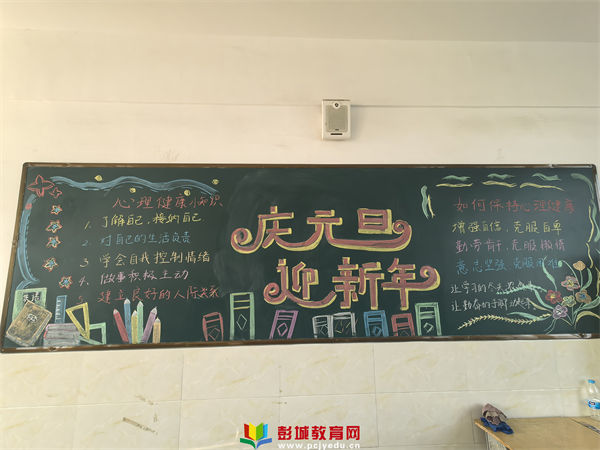 心理健康小知识
1. 了解自己，接纳自己
2. 对自己的生活负责
3. 学会自我控制情绪
4. 做事积极主动
5. 建立良好的人际关系
庆元旦
迎新年
如何保持心理健康
增强自信，克服自卑
勤劳肯干，克服懒惰
意志坚强，克服
让学习的
让勤奋的手
彭城教育网
www.pcjyedu.cn